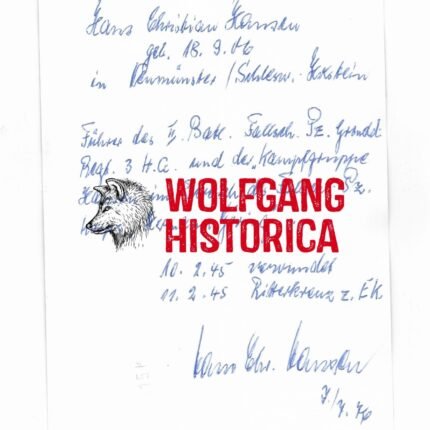 Hans Christian Hansen
geb. 18. 9. 06
in Neumünster / Schlesw. Holstein
Führer des II. Batl. Fallsch. Pz. Grenad.
Regt. 3 H.G. und der "Kampfgruppe
Pz.
WOLFGANG
HISTORICA
10. 2. 45 verwundet
11. 2. 45 Ritterkreuz z. EK
Hans Chr. Hansen